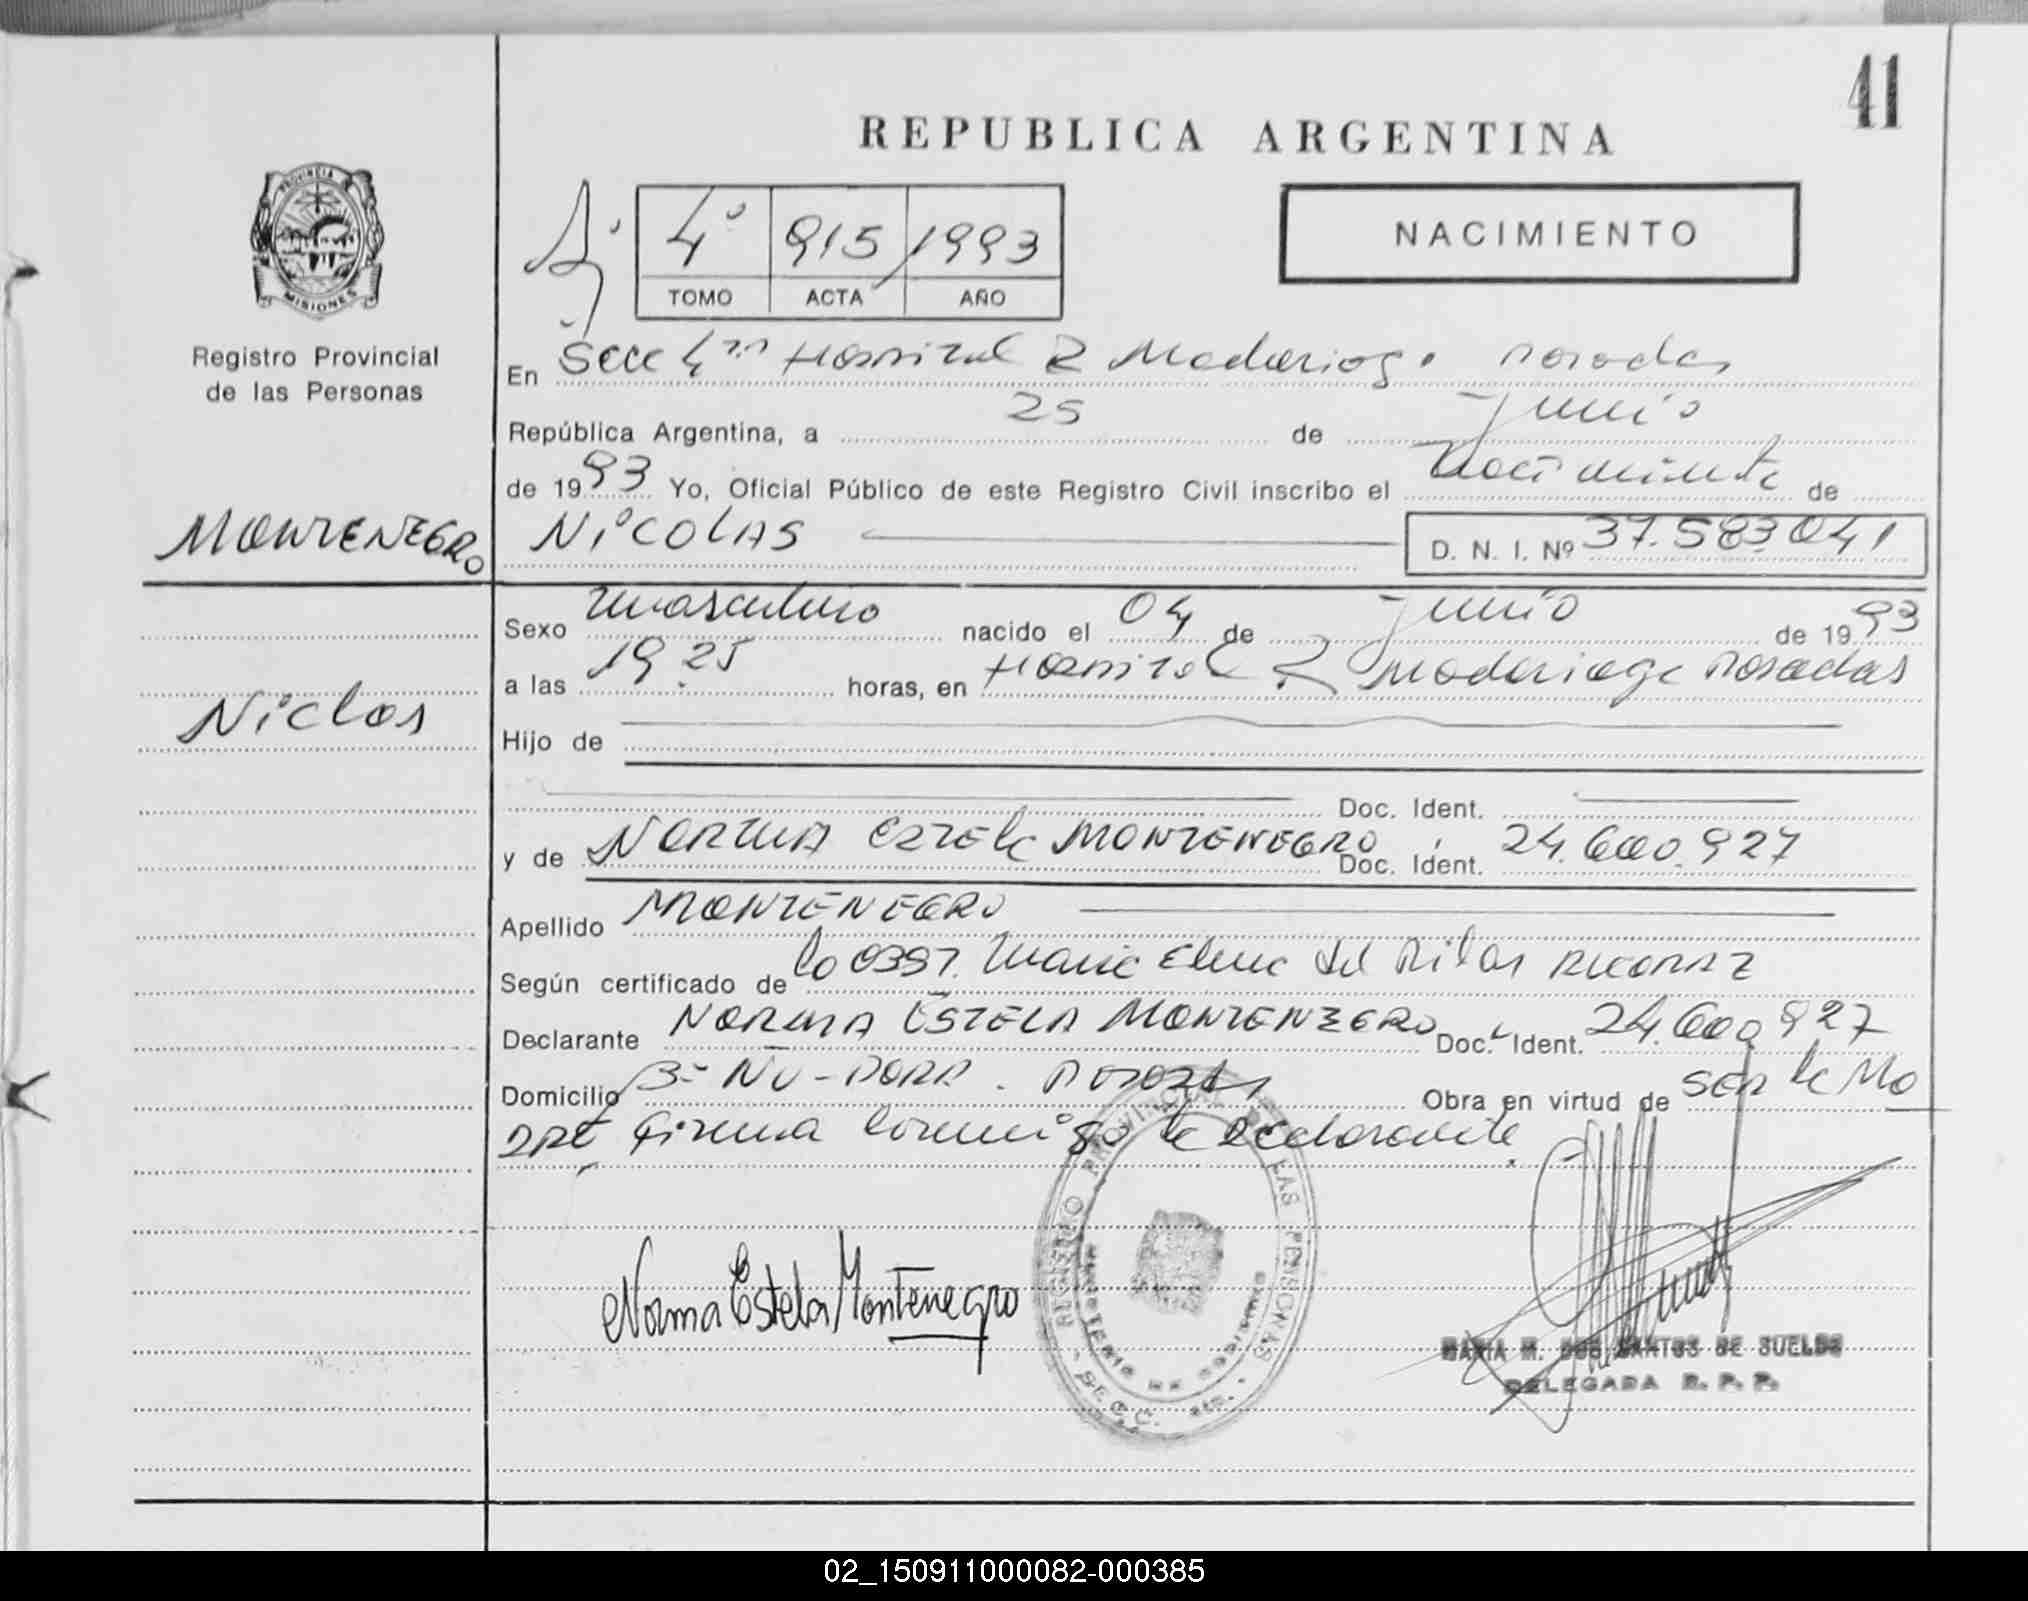 41
REPUBLICA ARGENTINA
4º 915 1993
TOMO ACTA AÑO
NACIMIENTO
PROVINCIA
MISIONES
Registro Provincial
de las Personas
En Secc 4ta Hospital R Madariaga Posadas
República Argentina, a 25 de junio
de 1993 Yo, Oficial Público de este Registro Civil inscribo el Nacimiento de
MONTENEGRO
NiCOLAS D. N. I. Nº 37.583.041
Sexo masculino nacido el 04 de junio de 1993
a las 19.25 horas, en Hospital R Madariaga Posadas
Niclas
Hijo de
Doc. Ident.
y de NORMA ESTELA MONTENEGRO Doc. Ident. 24.600.927
Apellido MONTENEGRO
Según certificado de Maria Elena del Pilar
Declarante NORMA ESTELA MONTENEGRO Doc. Ident. 24.600.927
Domicilio Posadas Obra en virtud de ser la Ma
dre firma conmigo la declarante.
REGISTRO PROVINCIAL DE LAS PERSONAS
Norma Estela Montenegro
MARIA M. DOS SANTOS DE SUELDO
DELEGADA R. P. P.
02_150911000082-000385